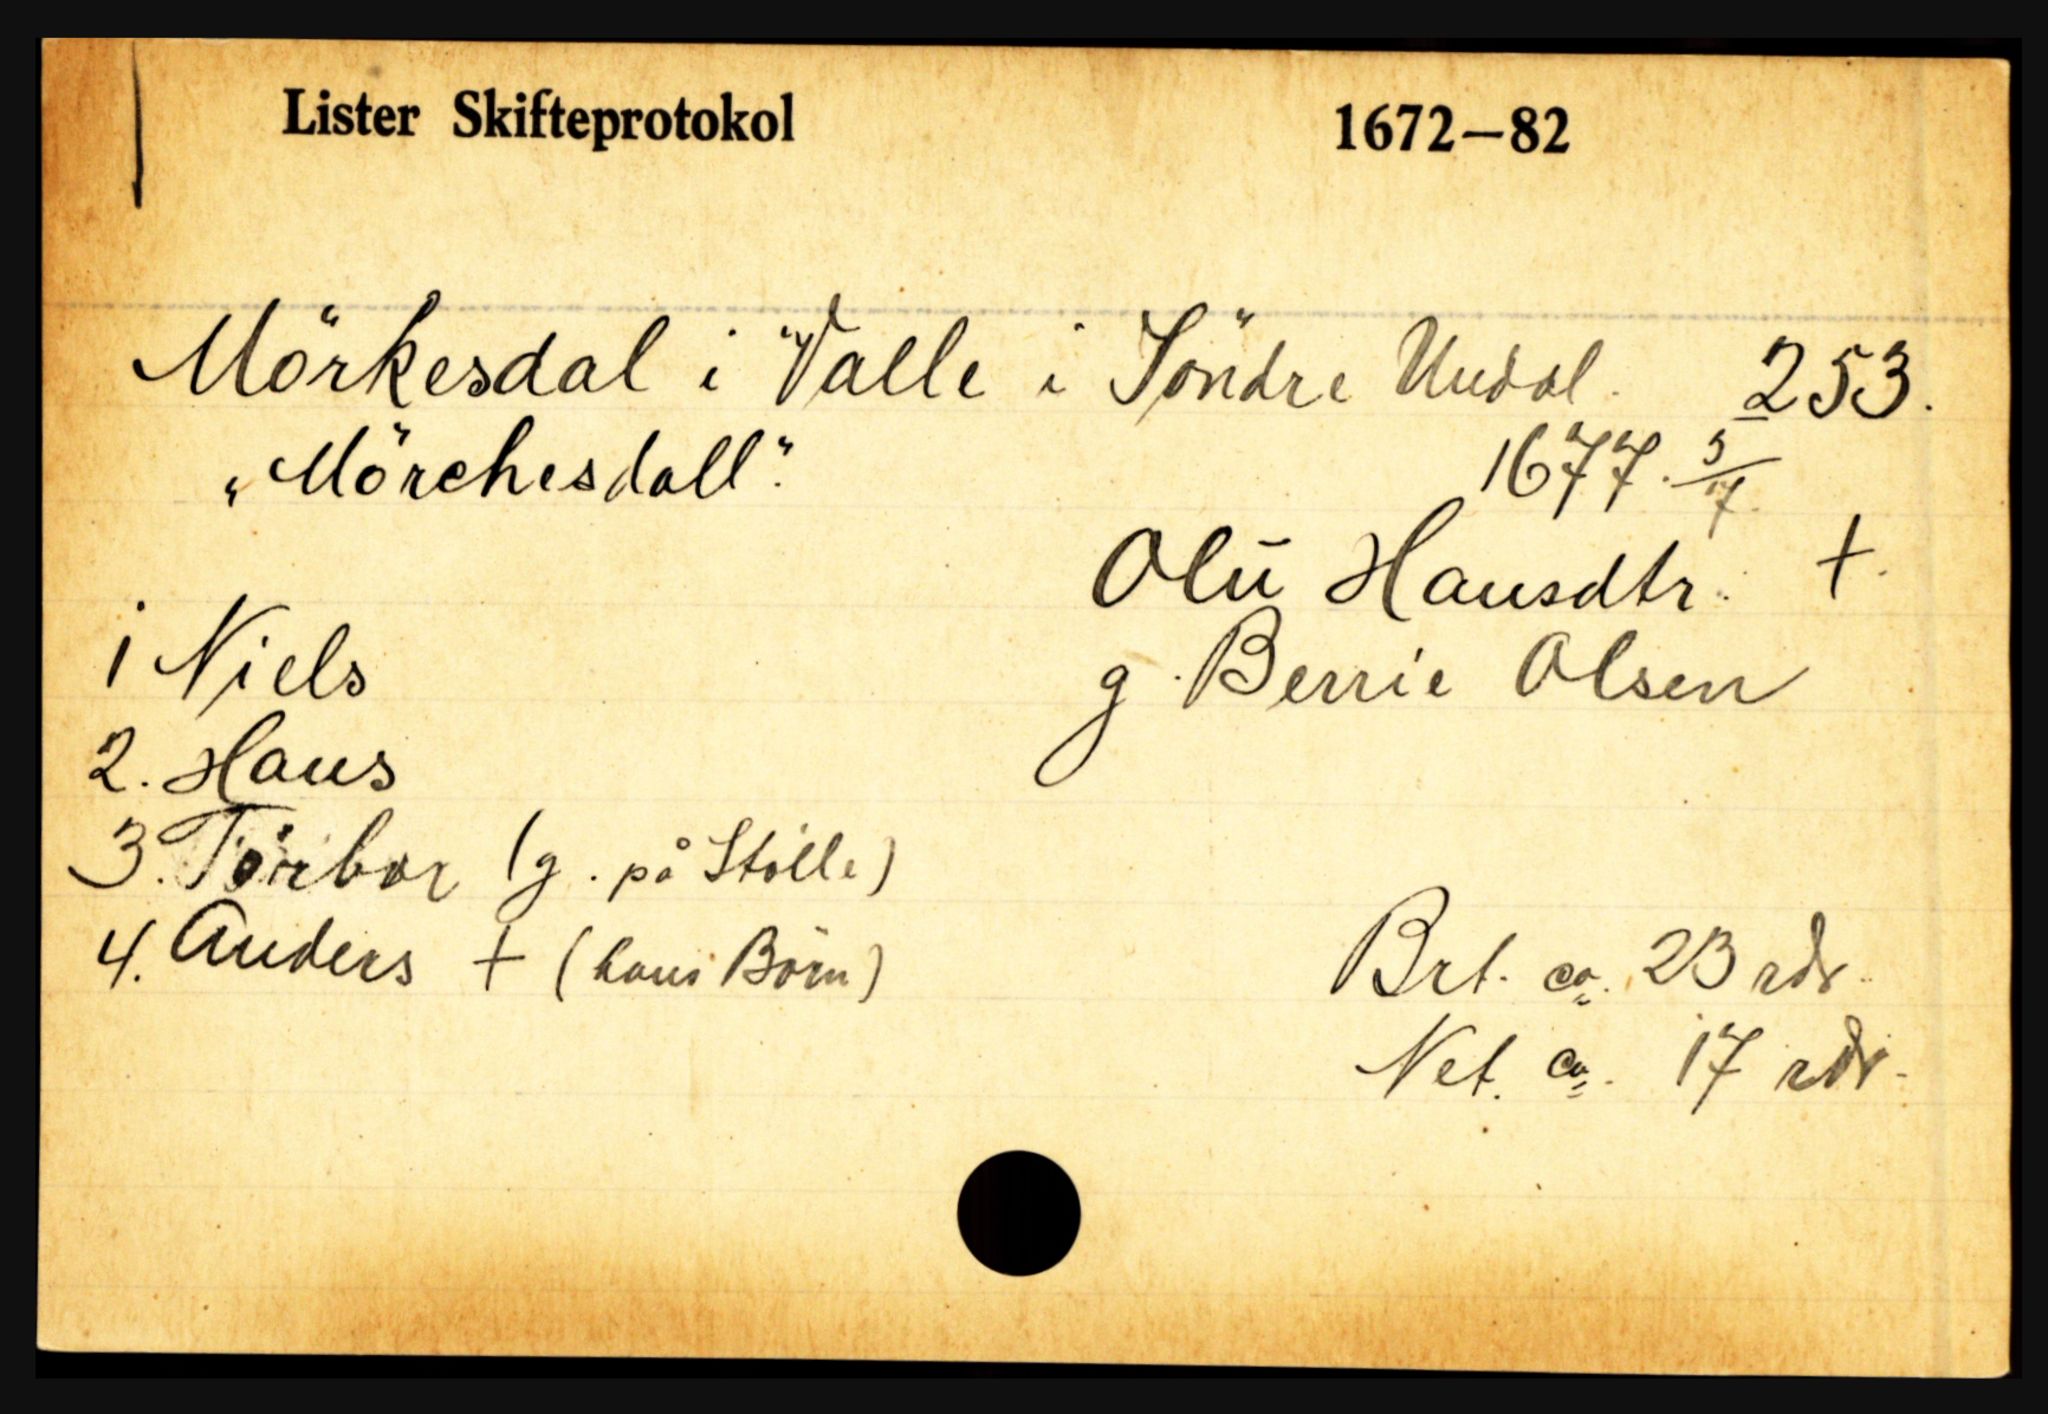 Lister Skifteprotokol 1672–82
Mörkesdal i Valle i Söndre Undal. 253.
„Mörchesdall". 1677. 5/17.
Olū Hansdtr. +.
1 Niels
g. Berrie Olsen
2. Hans
3. Torbor (g. på Stölle)
4. Anders + (hans Börn)
Brt. ca. 23 rdr.
Net. ca. 17 rdr.